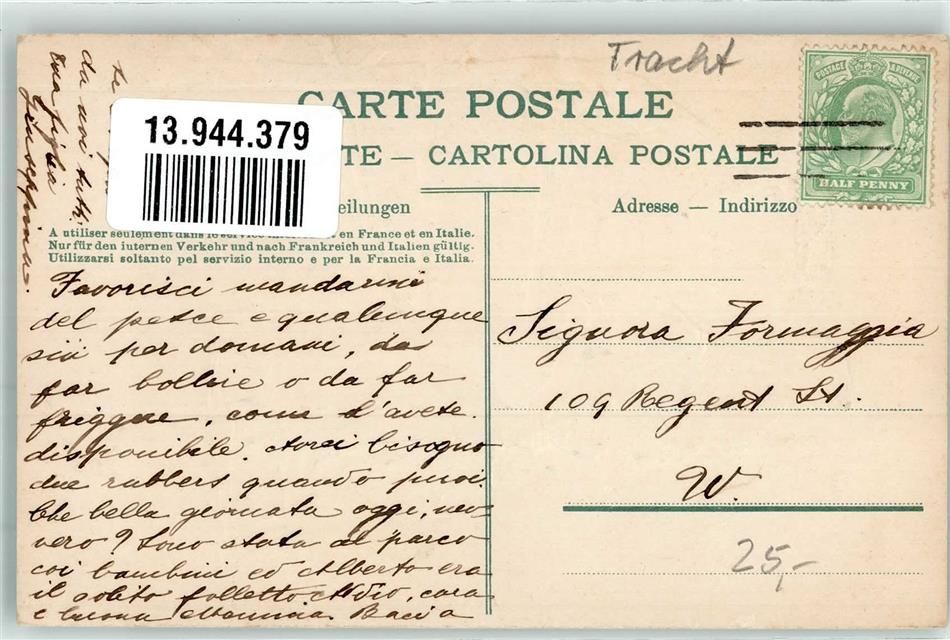 Tracht
CARTE POSTALE
TE – CARTOLINA POSTALE
eilungen
Adresse — Indirizzo
POSTAGE & REVENUE
HALF PENNY
13.944.379
A utiliser seulement dans le service en France et en Italie.
Nur für den internen Verkehr und nach Frankreich und Italien gültig.
Utilizzarsi soltanto pel servizio interno e per la Francia e Italia.
Favorisci mandarmi
del pesce e qualunque
sia per domani, da
far bollire o da far
friggere, come l'avete
disponibile. Avrei bisogno
due rubbers quando puoi.
Che bella giornata oggi, non
vero? Sono stata al parco
coi bambini ed Alberto era
il solito folletto. Addio, cara
e buona Mamma. Baci a
te
da noi tutti.
tua figlia
Giuseppina.
Signora Formaggia
109 Regent St.
W.
25,-